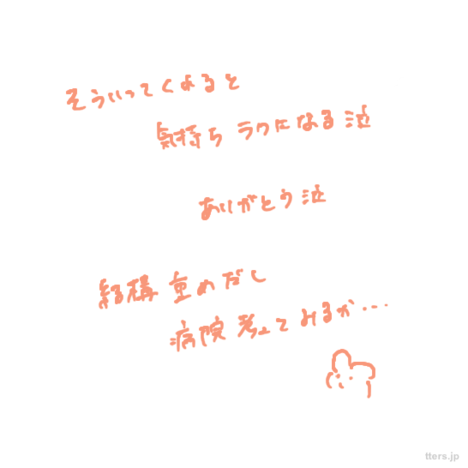 そういってくれると
気持ちラクになる泣
ありがとう泣
結構重めだし
病院考えてみるか...
tters.jp